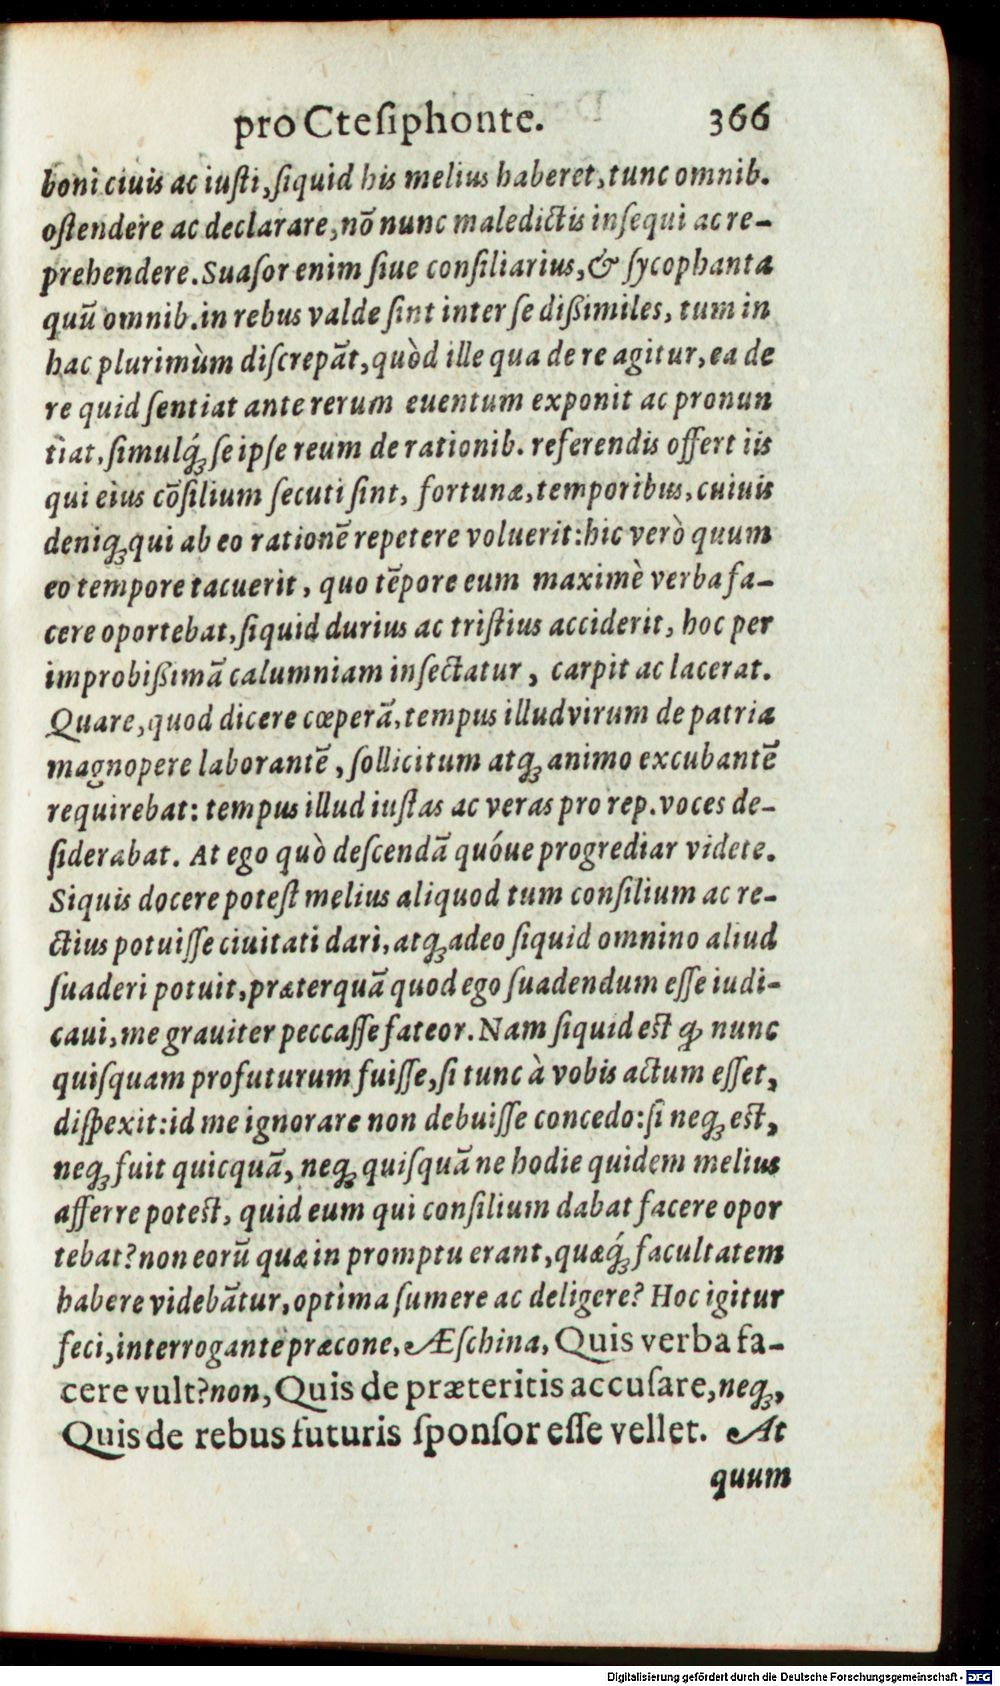 pro Cteſiphonte. 366
boni ciuis ac iuſti, ſiquid his melius haberet, tunc omnib.
oſtendere ac declarare, nō nunc maledictis inſequi ac re-
prehendere. Suaſor enim ſiue conſiliarius, & ſycophanta
quū omnib. in rebus valde ſint inter ſe dißimiles, tum in
hac plurimùm diſcrepāt, quòd ille qua de re agitur, ea de
re quid ſentiat ante rerum euentum exponit ac pronun
tiat, ſimulq́ꝫ ſe ipſe reum de rationib. referendis offert iis
qui eius cōſilium ſecuti ſint, fortunæ, temporibus, cuiuis
deniqꝫ qui ab eo rationē repetere voluerit: hic verò quum
eo tempore tacuerit, quo tēpore eum maximè verba fa-
cere oportebat, ſiquid durius ac triſtius acciderit, hoc per
improbißimā calumniam inſectatur, carpit ac lacerat.
Quare, quod dicere cœperā, tempus illud virum de patria
magnopere laborantē, ſollicitum atqꝫ animo excubantē
requirebat: tempus illud iuſtas ac veras pro rep. voces de-
ſiderabat. At ego quò deſcendā quóue progrediar videte.
Siquis docere poteſt melius aliquod tum conſilium ac re-
ctius potuiſſe ciuitati dari, atqꝫ adeo ſiquid omnino aliud
ſuaderi potuit, præterquā quod ego ſuadendum eſſe iudi-
caui, me grauiter peccaſſe fateor. Nam ſiquid est ꝙ nunc
quiſquam profuturum fuiſſe, ſi tunc à vobis actum eſſet,
diſpexit: id me ignorare non debuiſſe concedo: ſi neqꝫ est,
neqꝫ fuit quicquā, neqꝫ quiſquā ne hodie quidem melius
afferre potest, quid eum qui conſilium dabat facere opor
tebat? non eorū quæ in promptu erant, quæq́ꝫ facultatem
habere videbātur, optima ſumere ac deligere? Hoc igitur
feci, interrogante præcone, Æſchina, Quis verba fa-
cere vult? non, Quis de præteritis accuſare, neqꝫ,
Quis de rebus futuris ſponſor eſſe vellet. At
quum
Digitalisierung gefördert durch die Deutsche Forschungsgemeinschaft - DFG